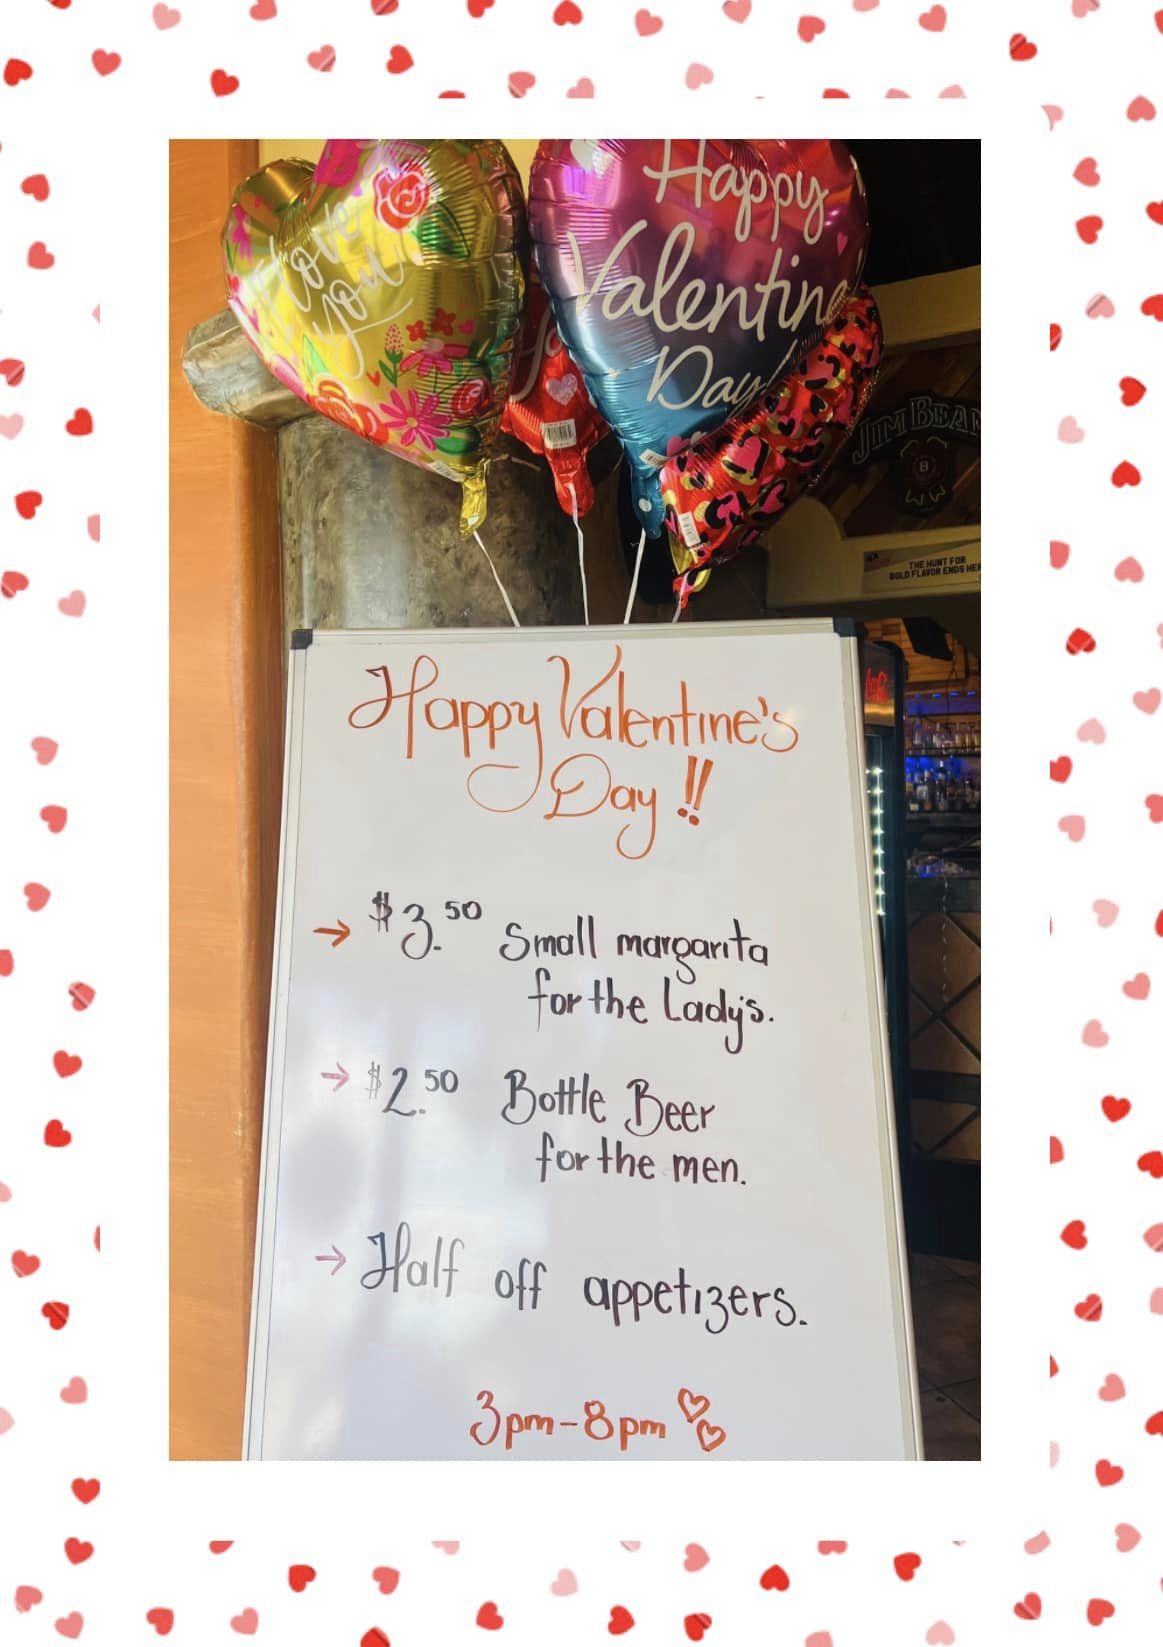 I Love
you
Happy
Valentine
Day!
JIM BEAM
THE HUNT FOR
BOLD FLAVOR ENDS HER
Happy Valentine's
Day !!
→ $3.50 Small margarita
for the Lady's.
→ $2.50 Bottle Beer
for the men.
→ Half off appetizers.
3pm-8pm